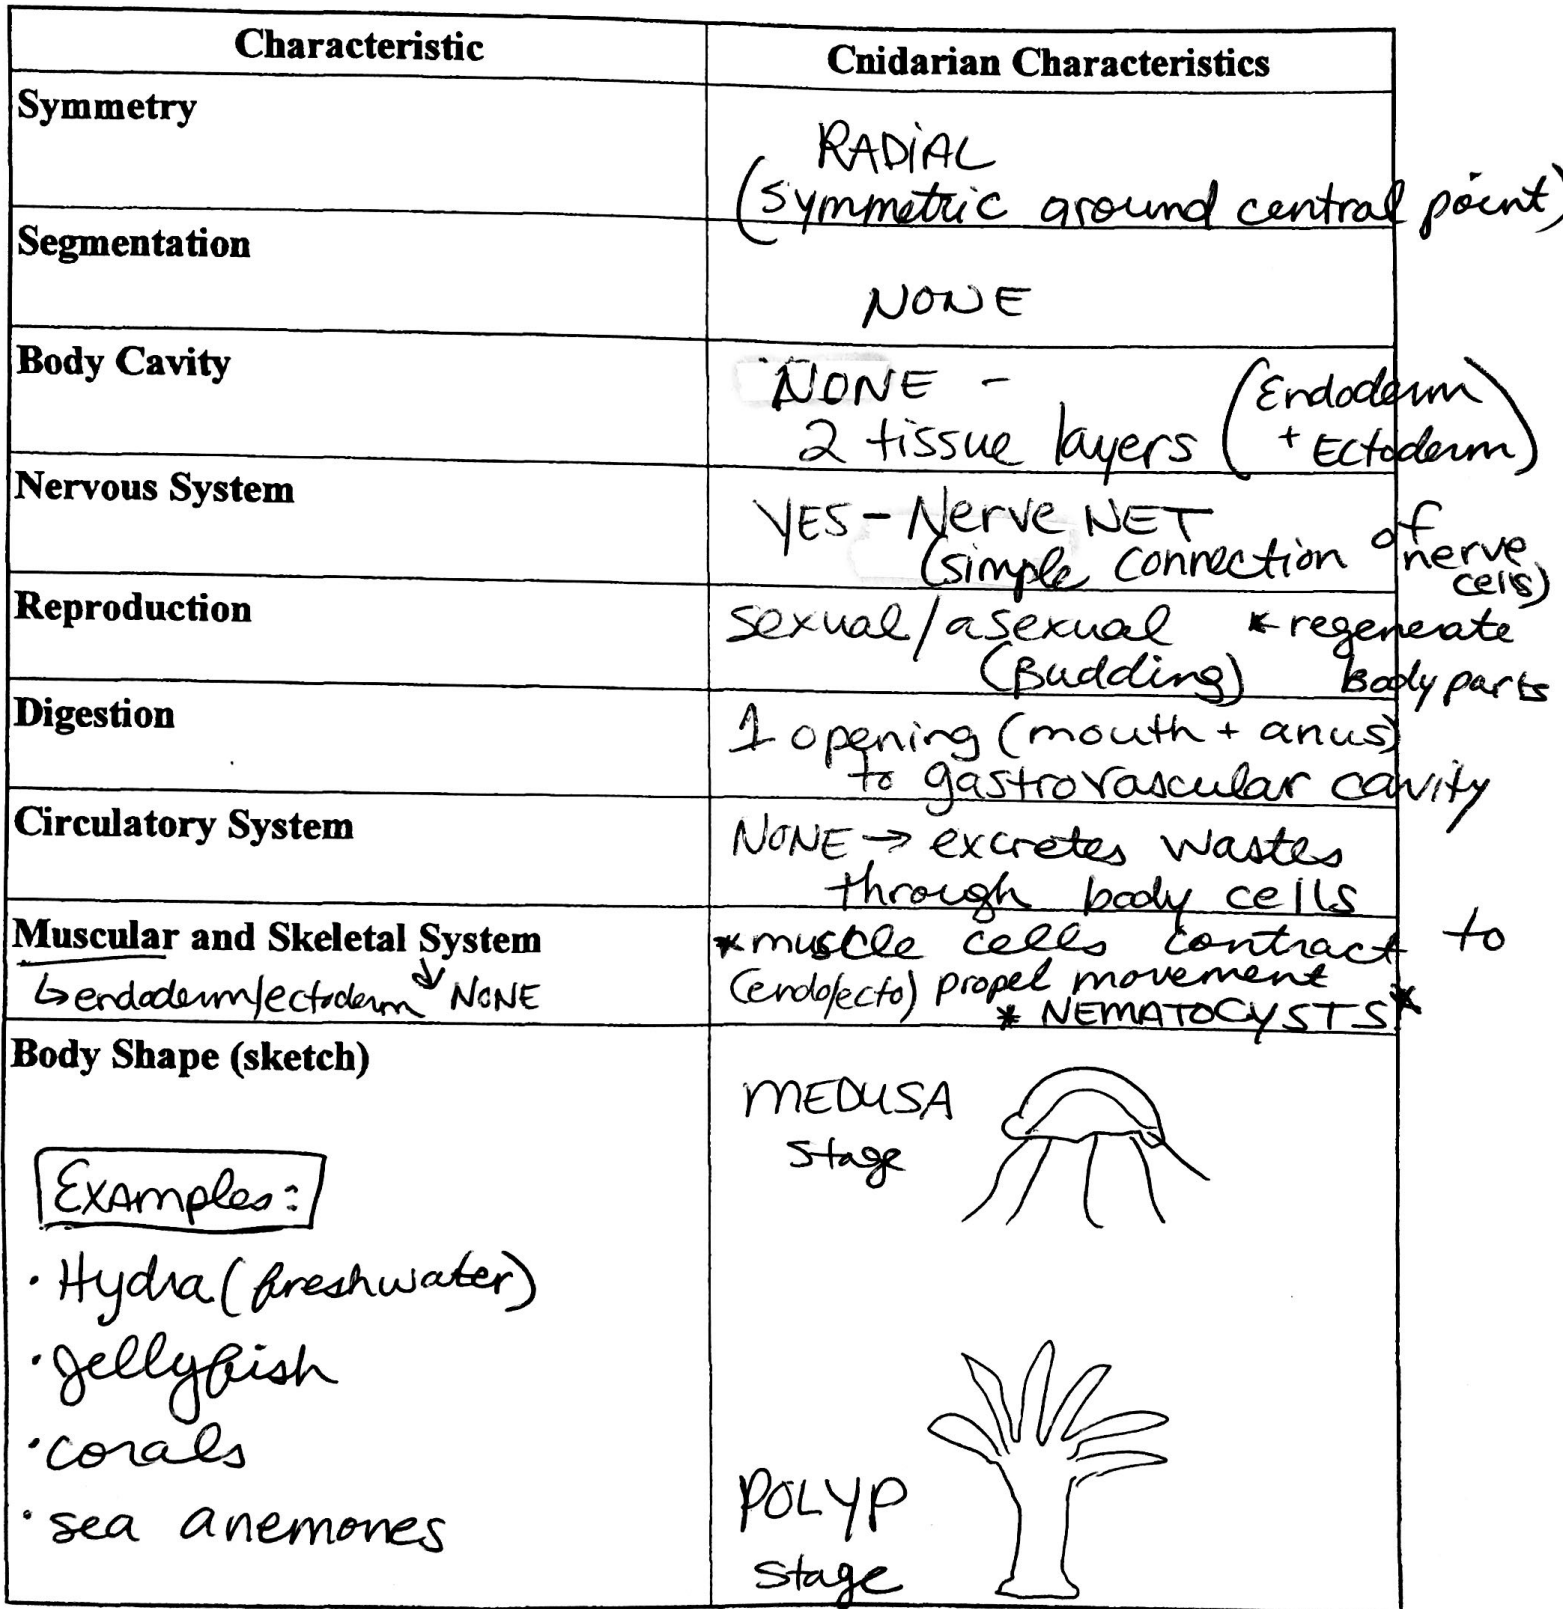 Characteristic
Cnidarian Characteristics
Symmetry
RADIAL
(symmetric around central point)
Segmentation
NONE
Body Cavity
NONE - (Endoderm
2 tissue layers + Ectoderm)
Nervous System
YES - Nerve NET
(simple connection of nerve
cells)
Reproduction
sexual/asexual * regenerate
(Budding) Body parts
Digestion
1 opening (mouth + anus)
to gastrovascular cavity
Circulatory System
NONE → excretes wastes
through body cells
Muscular and Skeletal System
↳ endoderm/ectoderm ↓ NONE
* muscle cells contract to
(endo/ecto) propel movement
* NEMATOCYSTS *
Body Shape (sketch)
MEDUSA
stage
Examples:
· Hydra (freshwater)
· jellyfish
· corals
· sea anemones
POLYP
stage